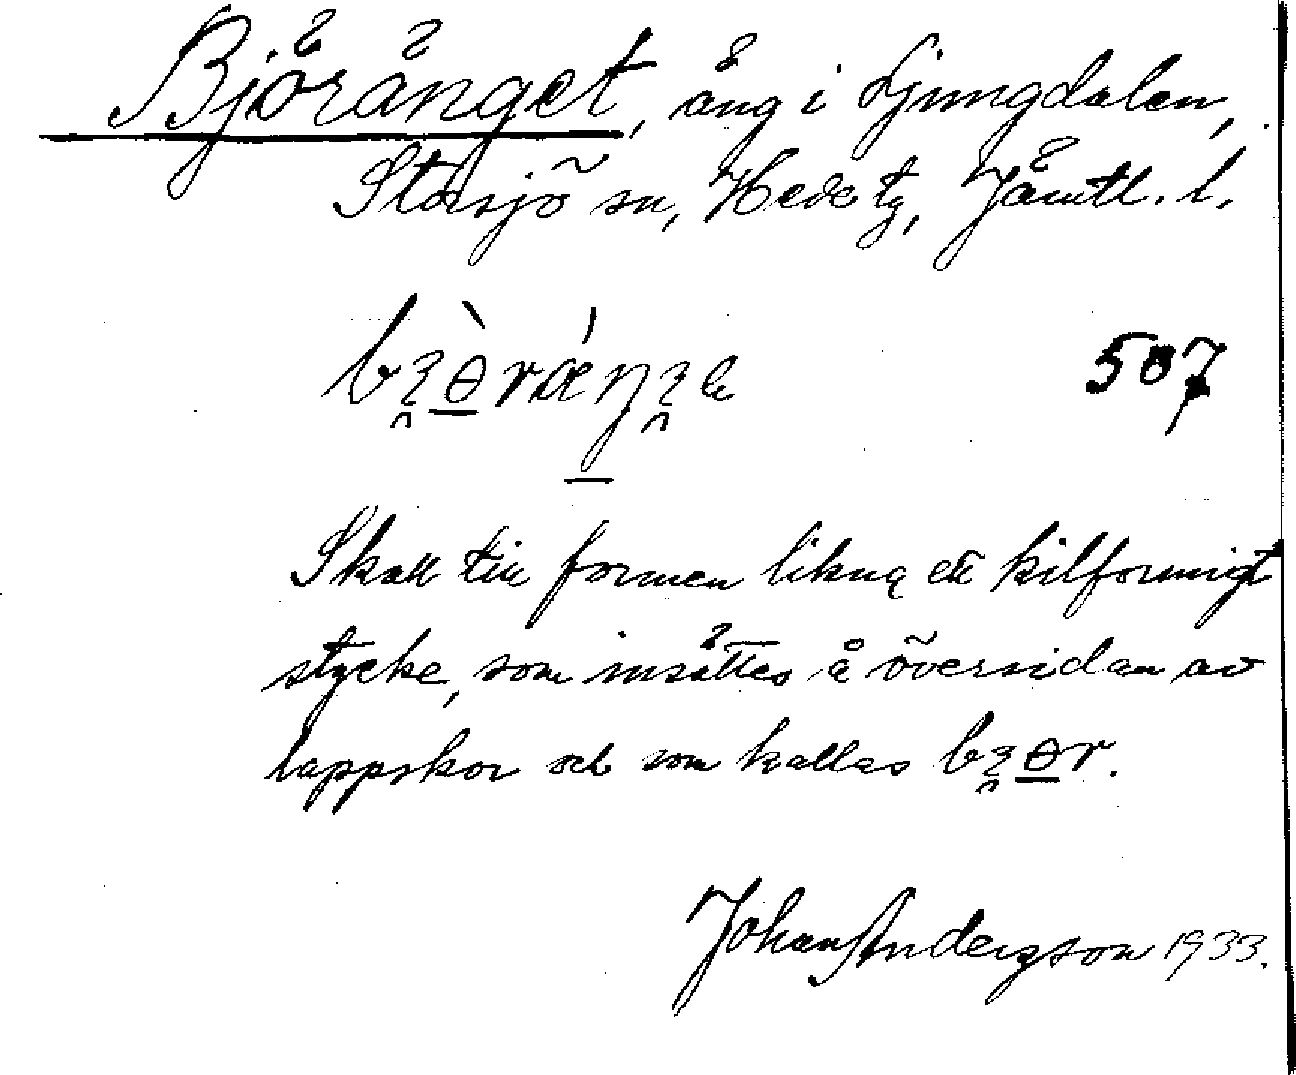 Björänget, äng i Ljungdalen,
Storsjö sn, Hede tg, Jämtl. l.
507
Skall till formen likna ett kilformigt
stycke, som insättes å översidan av
lappskor och som kallas
Johan Andersson 1933.